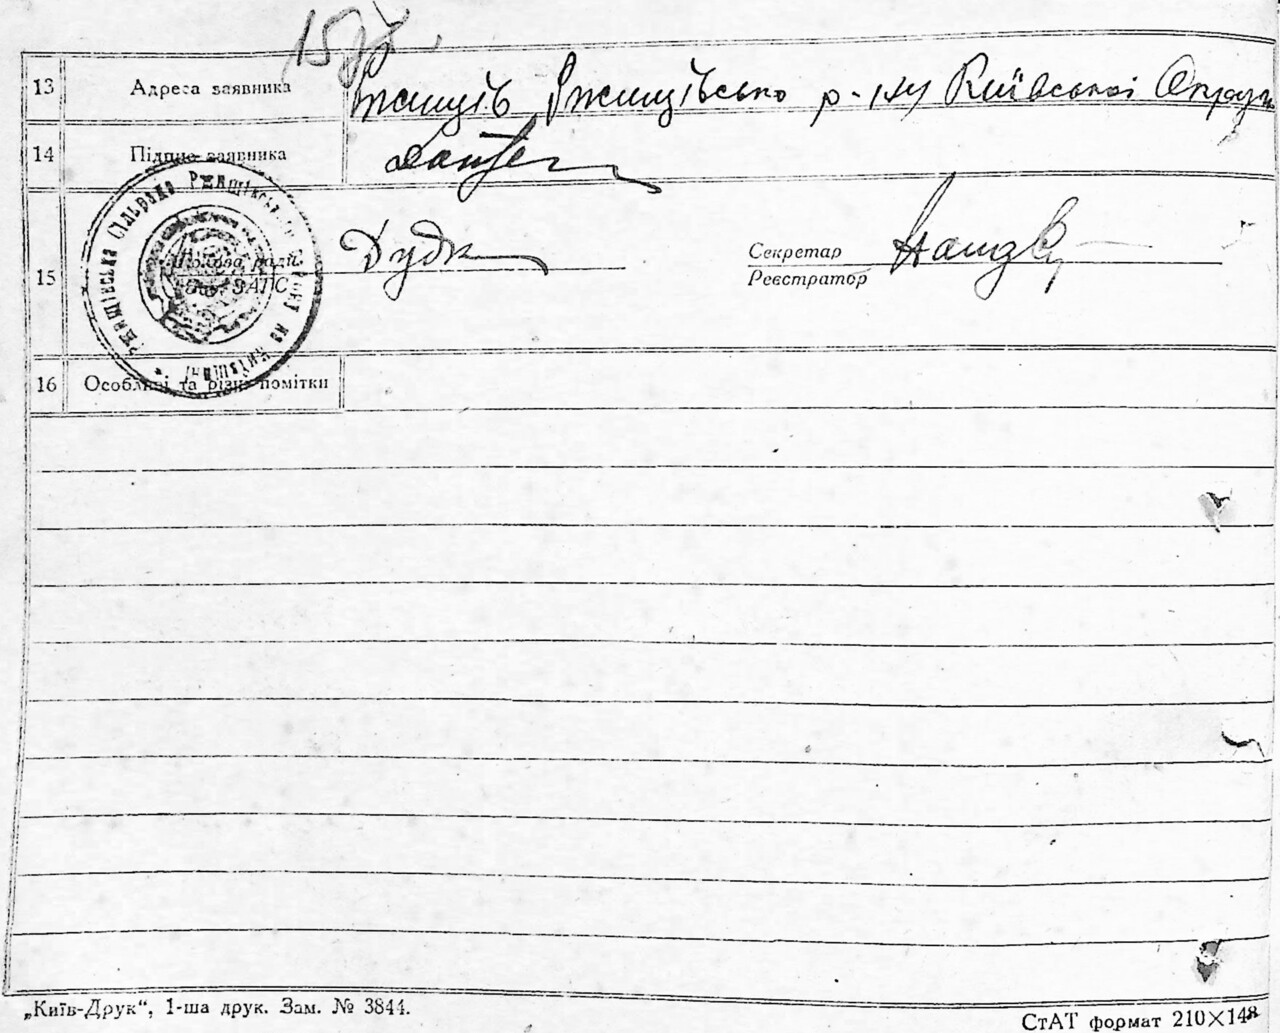 13 Адреса заявника Ржищів Ржищівсько р-ну Київської Округи
14 Підпис заявника
Ржищівська Сільрада Ржищівського району на Київщині
15 Голова ради
ЗАГС
Дудк
Секретар
Реєстратор
16 Особливі та різні помітки
„Київ-Друк“, 1-ша друк. Зам. № 3844.
СтАТ формат 210×148